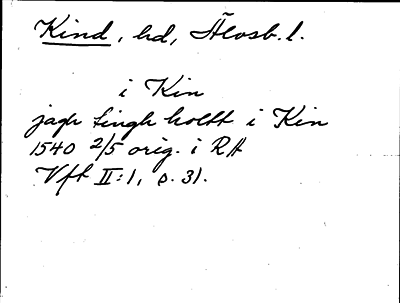 Kind, hd, Älvsb. l.
i Kin
jagh tingh holtt i Kin
1540 2/5 orig. i RA
Vft II:1, p. 31.